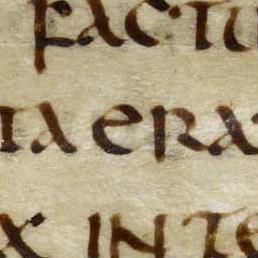 factu
ta erat
x inte